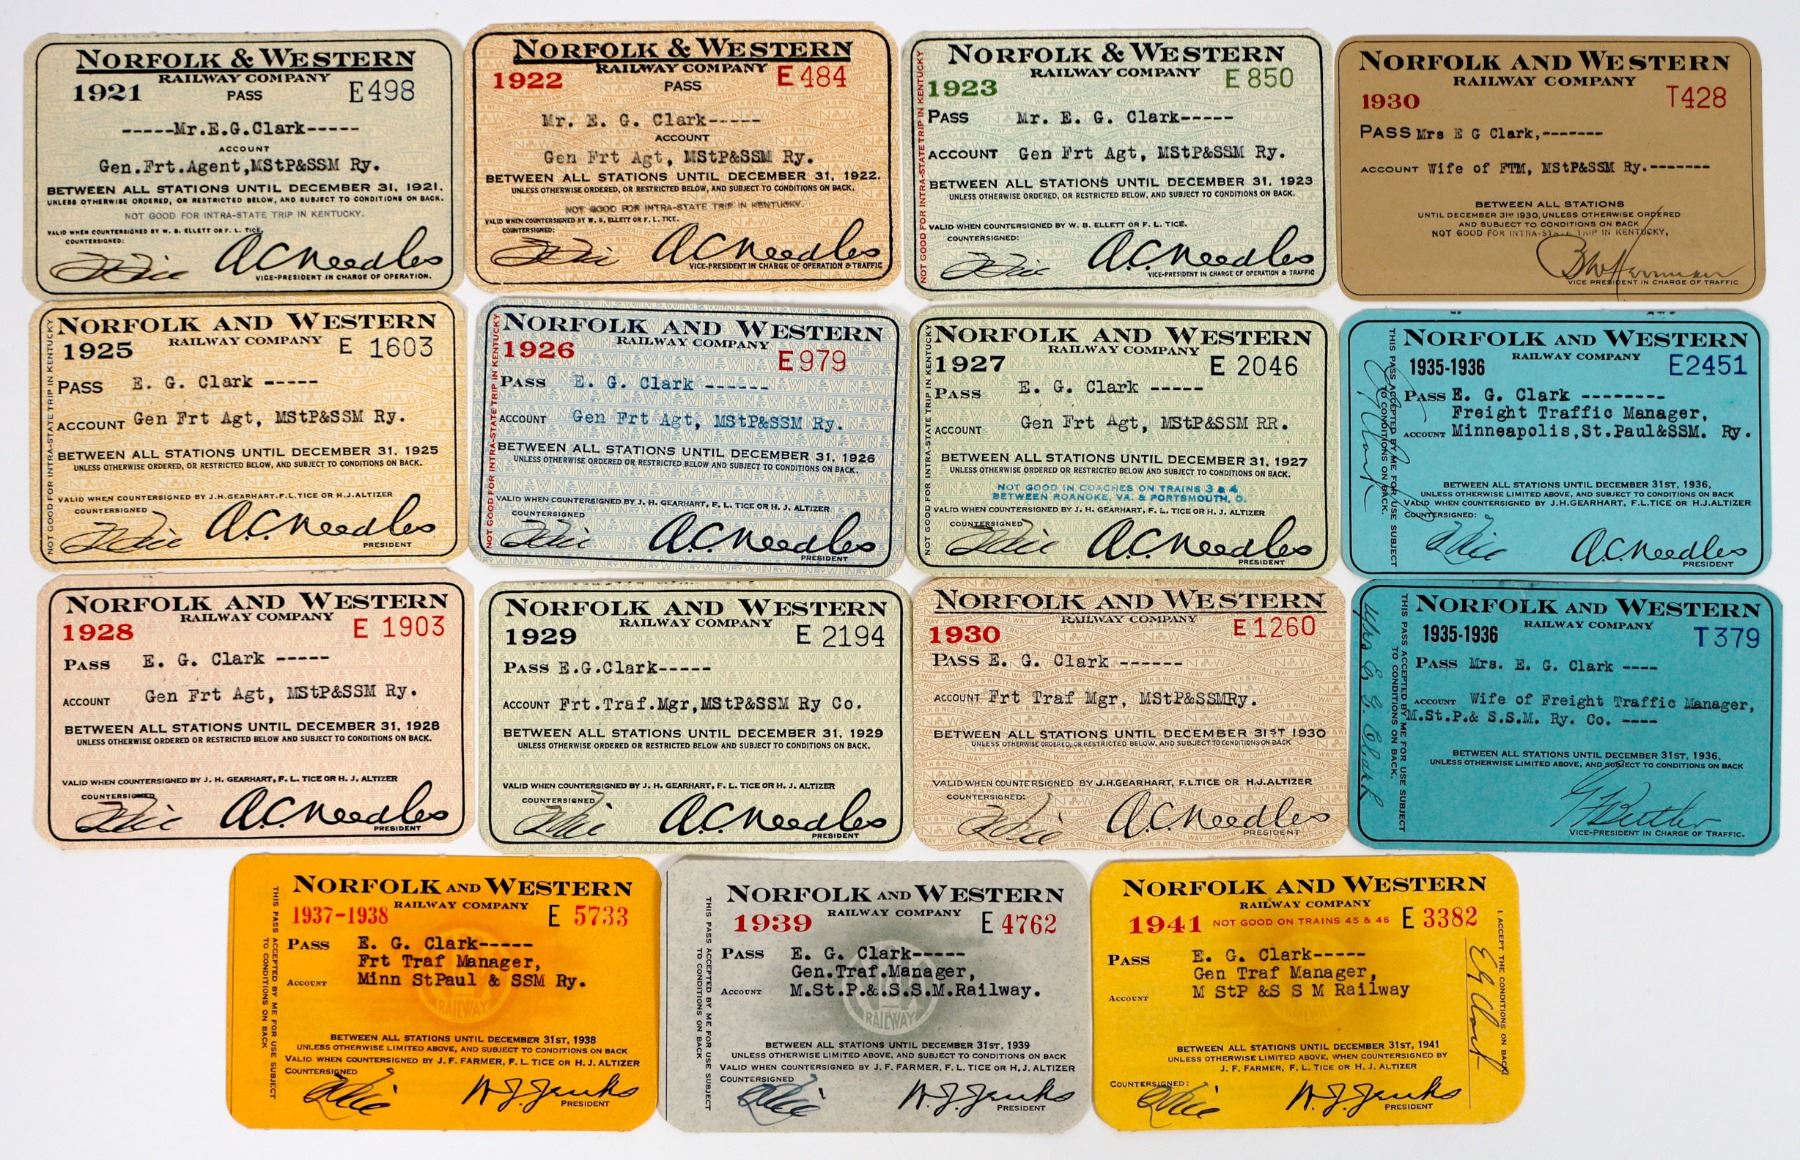 NORFOLK & WESTERN
RAILWAY COMPANY
1921 PASS E498
-----Mr.E.G.Clark-----
ACCOUNT
Gen.Frt.Agent,MStP&SSM Ry.
BETWEEN ALL STATIONS UNTIL DECEMBER 31, 1921.
UNLESS OTHERWISE ORDERED, OR RESTRICTED BELOW, AND SUBJECT TO CONDITIONS ON BACK.
NOT GOOD FOR INTRA-STATE TRIP IN KENTUCKY.
VALID WHEN COUNTERSIGNED BY W. B. ELLETT OR F. L. TICE.
COUNTERSIGNED:
A.C.Needles
VICE-PRESIDENT IN CHARGE OF OPERATION.
NORFOLK & WESTERN
RAILWAY COMPANY
1922 PASS E484
Mr. E. G. Clark-----
ACCOUNT
Gen Frt Agt, MStP&SSM Ry.
BETWEEN ALL STATIONS UNTIL DECEMBER 31, 1922.
UNLESS OTHERWISE ORDERED, OR RESTRICTED BELOW, AND SUBJECT TO CONDITIONS ON BACK.
NOT GOOD FOR INTRA-STATE TRIP IN KENTUCKY.
VALID WHEN COUNTERSIGNED BY W. B. ELLETT OR F. L. TICE.
COUNTERSIGNED:
A.C.Needles
VICE-PRESIDENT IN CHARGE OF OPERATION & TRAFFIC
NORFOLK & WESTERN
RAILWAY COMPANY
1923 E850
PASS Mr. E. G. Clark-----
ACCOUNT Gen Frt Agt, MStP&SSM Ry.
BETWEEN ALL STATIONS UNTIL DECEMBER 31, 1923
UNLESS OTHERWISE ORDERED, OR RESTRICTED BELOW, AND SUBJECT TO CONDITIONS ON BACK.
VALID WHEN COUNTERSIGNED BY W. B. ELLETT OR F. L. TICE.
COUNTERSIGNED:
A.C.Needles
VICE-PRESIDENT IN CHARGE OF OPERATION & TRAFFIC
NOT GOOD FOR INTRA-STATE TRIP IN KENTUCKY
NORFOLK AND WESTERN
RAILWAY COMPANY
1930 T428
PASS Mrs E G Clark,-------
ACCOUNT Wife of FTM, MStP&SSM Ry.--------
BETWEEN ALL STATIONS
UNTIL DECEMBER 31st 1930, UNLESS OTHERWISE ORDERED
AND SUBJECT TO CONDITIONS ON BACK
NOT GOOD FOR INTRA-STATE TRIP IN KENTUCKY,
VICE PRESIDENT IN CHARGE OF TRAFFIC
NORFOLK AND WESTERN
1925 RAILWAY COMPANY E 1603
PASS E. G. Clark -----
ACCOUNT Gen Frt Agt, MStP&SSM Ry.
BETWEEN ALL STATIONS UNTIL DECEMBER 31, 1925
UNLESS OTHERWISE ORDERED, OR RESTRICTED BELOW, AND SUBJECT TO CONDITIONS ON BACK.
VALID WHEN COUNTERSIGNED BY J.H.GEARHART, F.L.TICE OR H.J.ALTIZER
COUNTERSIGNED
A.C.Needles
PRESIDENT
NOT GOOD FOR INTRA-STATE TRIP IN KENTUCKY
NORFOLK AND WESTERN
1926 RAILWAY COMPANY E979
PASS E. G. Clark ------
ACCOUNT Gen Frt Agt, MStP&SSM Ry.
BETWEEN ALL STATIONS UNTIL DECEMBER 31, 1926
UNLESS OTHERWISE ORDERED, OR RESTRICTED BELOW, AND SUBJECT TO CONDITIONS ON BACK.
VALID WHEN COUNTERSIGNED BY J. H. GEARHART, F.L. TICE OR H.J. ALTIZER
COUNTERSIGNED
A.C.Needles
PRESIDENT
NOT GOOD FOR INTRA-STATE TRIP IN KENTUCKY
NORFOLK AND WESTERN
RAILWAY COMPANY
1927 E 2046
PASS E. G. Clark -----
ACCOUNT Gen Frt Agt, MStP&SSM RR.
BETWEEN ALL STATIONS UNTIL DECEMBER 31, 1927
UNLESS OTHERWISE ORDERED OR RESTRICTED BELOW AND SUBJECT TO CONDITIONS ON BACK.
NOT GOOD IN COACHES ON TRAINS 3 & 4
BETWEEN ROANOKE, VA. & PORTSMOUTH, O.
VALID WHEN COUNTERSIGNED BY J. H. GEARHART, F. L. TICE OR H. J. ALTIZER
COUNTERSIGNED
A.C.Needles
PRESIDENT
NOT GOOD FOR INTRA-STATE TRIP IN KENTUCKY
NORFOLK AND WESTERN
RAILWAY COMPANY
1935-1936 E2451
PASS E. G. Clark --------
Freight Traffic Manager,
ACCOUNT Minneapolis,St.Paul&SSM. Ry.
BETWEEN ALL STATIONS UNTIL DECEMBER 31ST, 1936,
UNLESS OTHERWISE LIMITED ABOVE, AND SUBJECT TO CONDITIONS ON BACK
VALID WHEN COUNTERSIGNED BY J.H.GEARHART, F.L.TICE OR H.J.ALTIZER
COUNTERSIGNED:
A.C.Needles
PRESIDENT
THIS PASS ACCEPTED BY ME FOR USE SUBJECT
TO CONDITIONS ON BACK.
E G Clark
NORFOLK AND WESTERN
1928 RAILWAY COMPANY E 1903
PASS E. G. Clark -----
ACCOUNT Gen Frt Agt, MStP&SSM Ry.
BETWEEN ALL STATIONS UNTIL DECEMBER 31, 1928
UNLESS OTHERWISE ORDERED OR RESTRICTED BELOW AND SUBJECT TO CONDITIONS ON BACK.
VALID WHEN COUNTERSIGNED BY J. H. GEARHART, F. L. TICE OR H. J. ALTIZER
COUNTERSIGNED
A.C.Needles
PRESIDENT
NORFOLK AND WESTERN
RAILWAY COMPANY
1929 E 2194
PASS E.G.Clark-----
ACCOUNT Frt.Traf.Mgr,MStP&SSM Ry Co.
BETWEEN ALL STATIONS UNTIL DECEMBER 31, 1929
UNLESS OTHERWISE ORDERED OR RESTRICTED BELOW AND SUBJECT TO CONDITIONS ON BACK.
VALID WHEN COUNTERSIGNED BY J. H. GEARHART, F. L. TICE OR H. J. ALTIZER
COUNTERSIGNED
A.C.Needles
PRESIDENT
NORFOLK AND WESTERN
RAILWAY COMPANY
1930 E1260
PASS E. G. Clark ------
ACCOUNT Frt Traf Mgr, MStP&SSMRy.
BETWEEN ALL STATIONS UNTIL DECEMBER 31ST 1930
UNLESS OTHERWISE ORDERED,OR RESTRICTED BELOW, AND SUBJECT TO CONDITIONS ON BACK
VALID WHEN COUNTERSIGNED BY J.H.GEARHART, F.L.TICE OR H.J.ALTIZER
COUNTERSIGNED:
A.C.Needles
PRESIDENT
NORFOLK AND WESTERN
RAILWAY COMPANY
1935-1936 T379
PASS Mrs. E. G. Clark ----
ACCOUNT Wife of Freight Traffic Manager,
M.St.P.& S.S.M. Ry. Co. ----
BETWEEN ALL STATIONS UNTIL DECEMBER 31ST, 1936,
UNLESS OTHERWISE LIMITED ABOVE, AND SUBJECT TO CONDITIONS ON BACK
VICE-PRESIDENT IN CHARGE OF TRAFFIC.
THIS PASS ACCEPTED BY ME FOR USE SUBJECT
TO CONDITIONS ON BACK.
Mrs E. G. Clark
NORFOLK AND WESTERN
RAILWAY COMPANY
1937-1938 E 5733
PASS E. G. Clark-----
Frt Traf Manager,
ACCOUNT Minn StPaul & SSM Ry.
RAILWAY
BETWEEN ALL STATIONS UNTIL DECEMBER 31ST, 1938
UNLESS OTHERWISE LIMITED ABOVE, AND SUBJECT TO CONDITIONS ON BACK
VALID WHEN COUNTERSIGNED BY J. F. FARMER, F. L. TICE OR H. J. ALTIZER
COUNTERSIGNED
W.J.Jenks
PRESIDENT
THIS PASS ACCEPTED BY ME FOR USE SUBJECT
TO CONDITIONS ON BACK
NORFOLK AND WESTERN
RAILWAY COMPANY
1939 E 4762
PASS E. G. Clark-----
Gen.Traf.Manager,
ACCOUNT M.St.P.&.S.S.M.Railway.
RAILWAY
BETWEEN ALL STATIONS UNTIL DECEMBER 31ST, 1939
UNLESS OTHERWISE LIMITED ABOVE, AND SUBJECT TO CONDITIONS ON BACK
VALID WHEN COUNTERSIGNED BY J. F. FARMER, F. L. TICE OR H. J. ALTIZER
COUNTERSIGNED
W.J.Jenks
PRESIDENT
THIS PASS ACCEPTED BY ME FOR USE SUBJECT
TO CONDITIONS ON BACK
NORFOLK AND WESTERN
RAILWAY COMPANY
1941 NOT GOOD ON TRAINS 45 & 46 E 3382
PASS E. G. Clark-----
Gen Traf Manager,
ACCOUNT M StP &S S M Railway
BETWEEN ALL STATIONS UNTIL DECEMBER 31ST, 1941
UNLESS OTHERWISE LIMITED ABOVE, WHEN COUNTERSIGNED BY
J. F. FARMER, F. L. TICE OR H. J. ALTIZER
COUNTERSIGNED:
W.J.Jenks
PRESIDENT
I ACCEPT THE CONDITIONS ON BACK
E G Clark